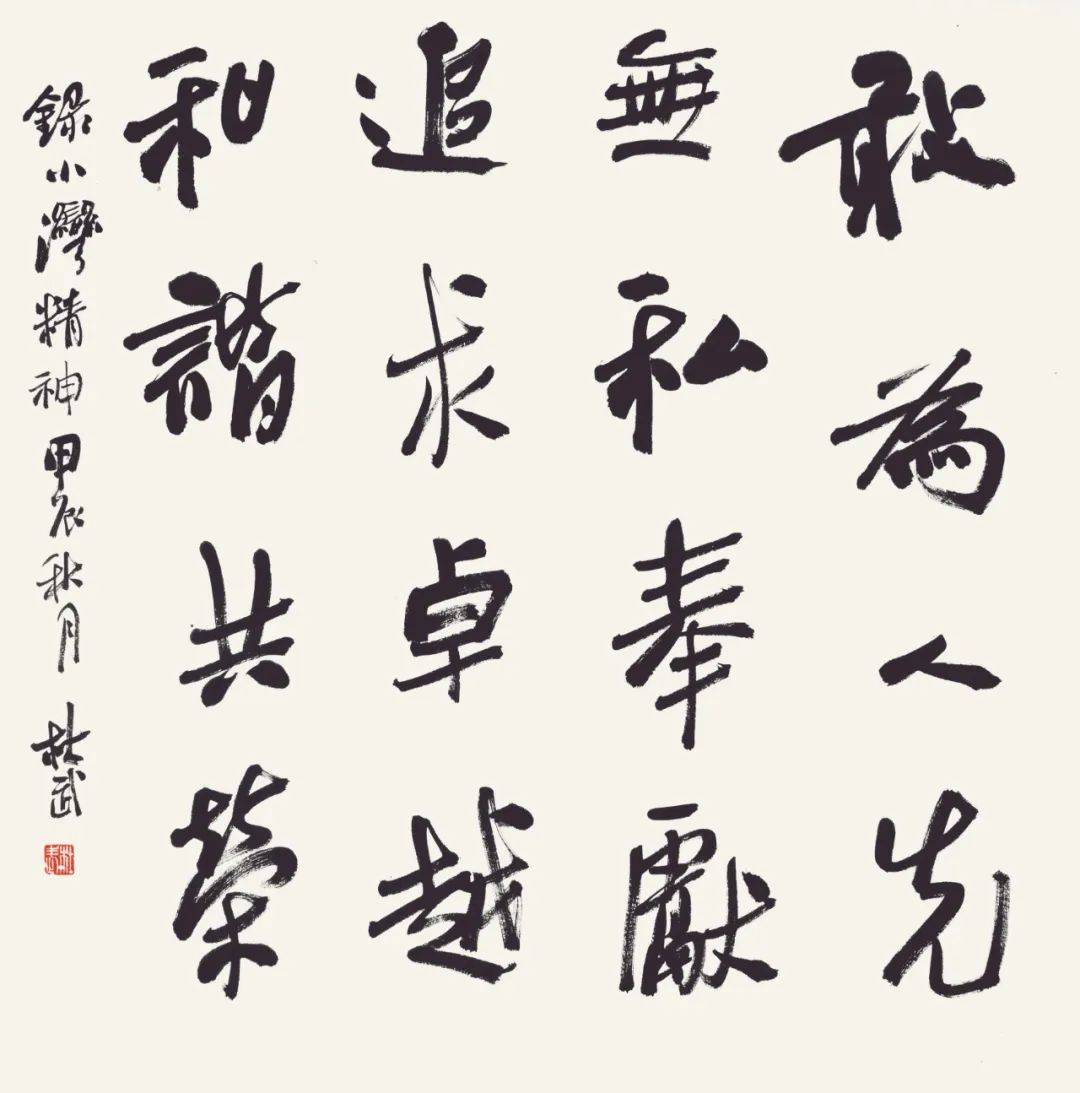 敢為人先
無私奉獻
追求卓越
和諧共榮
錄小灣精神甲辰秋月 杜武